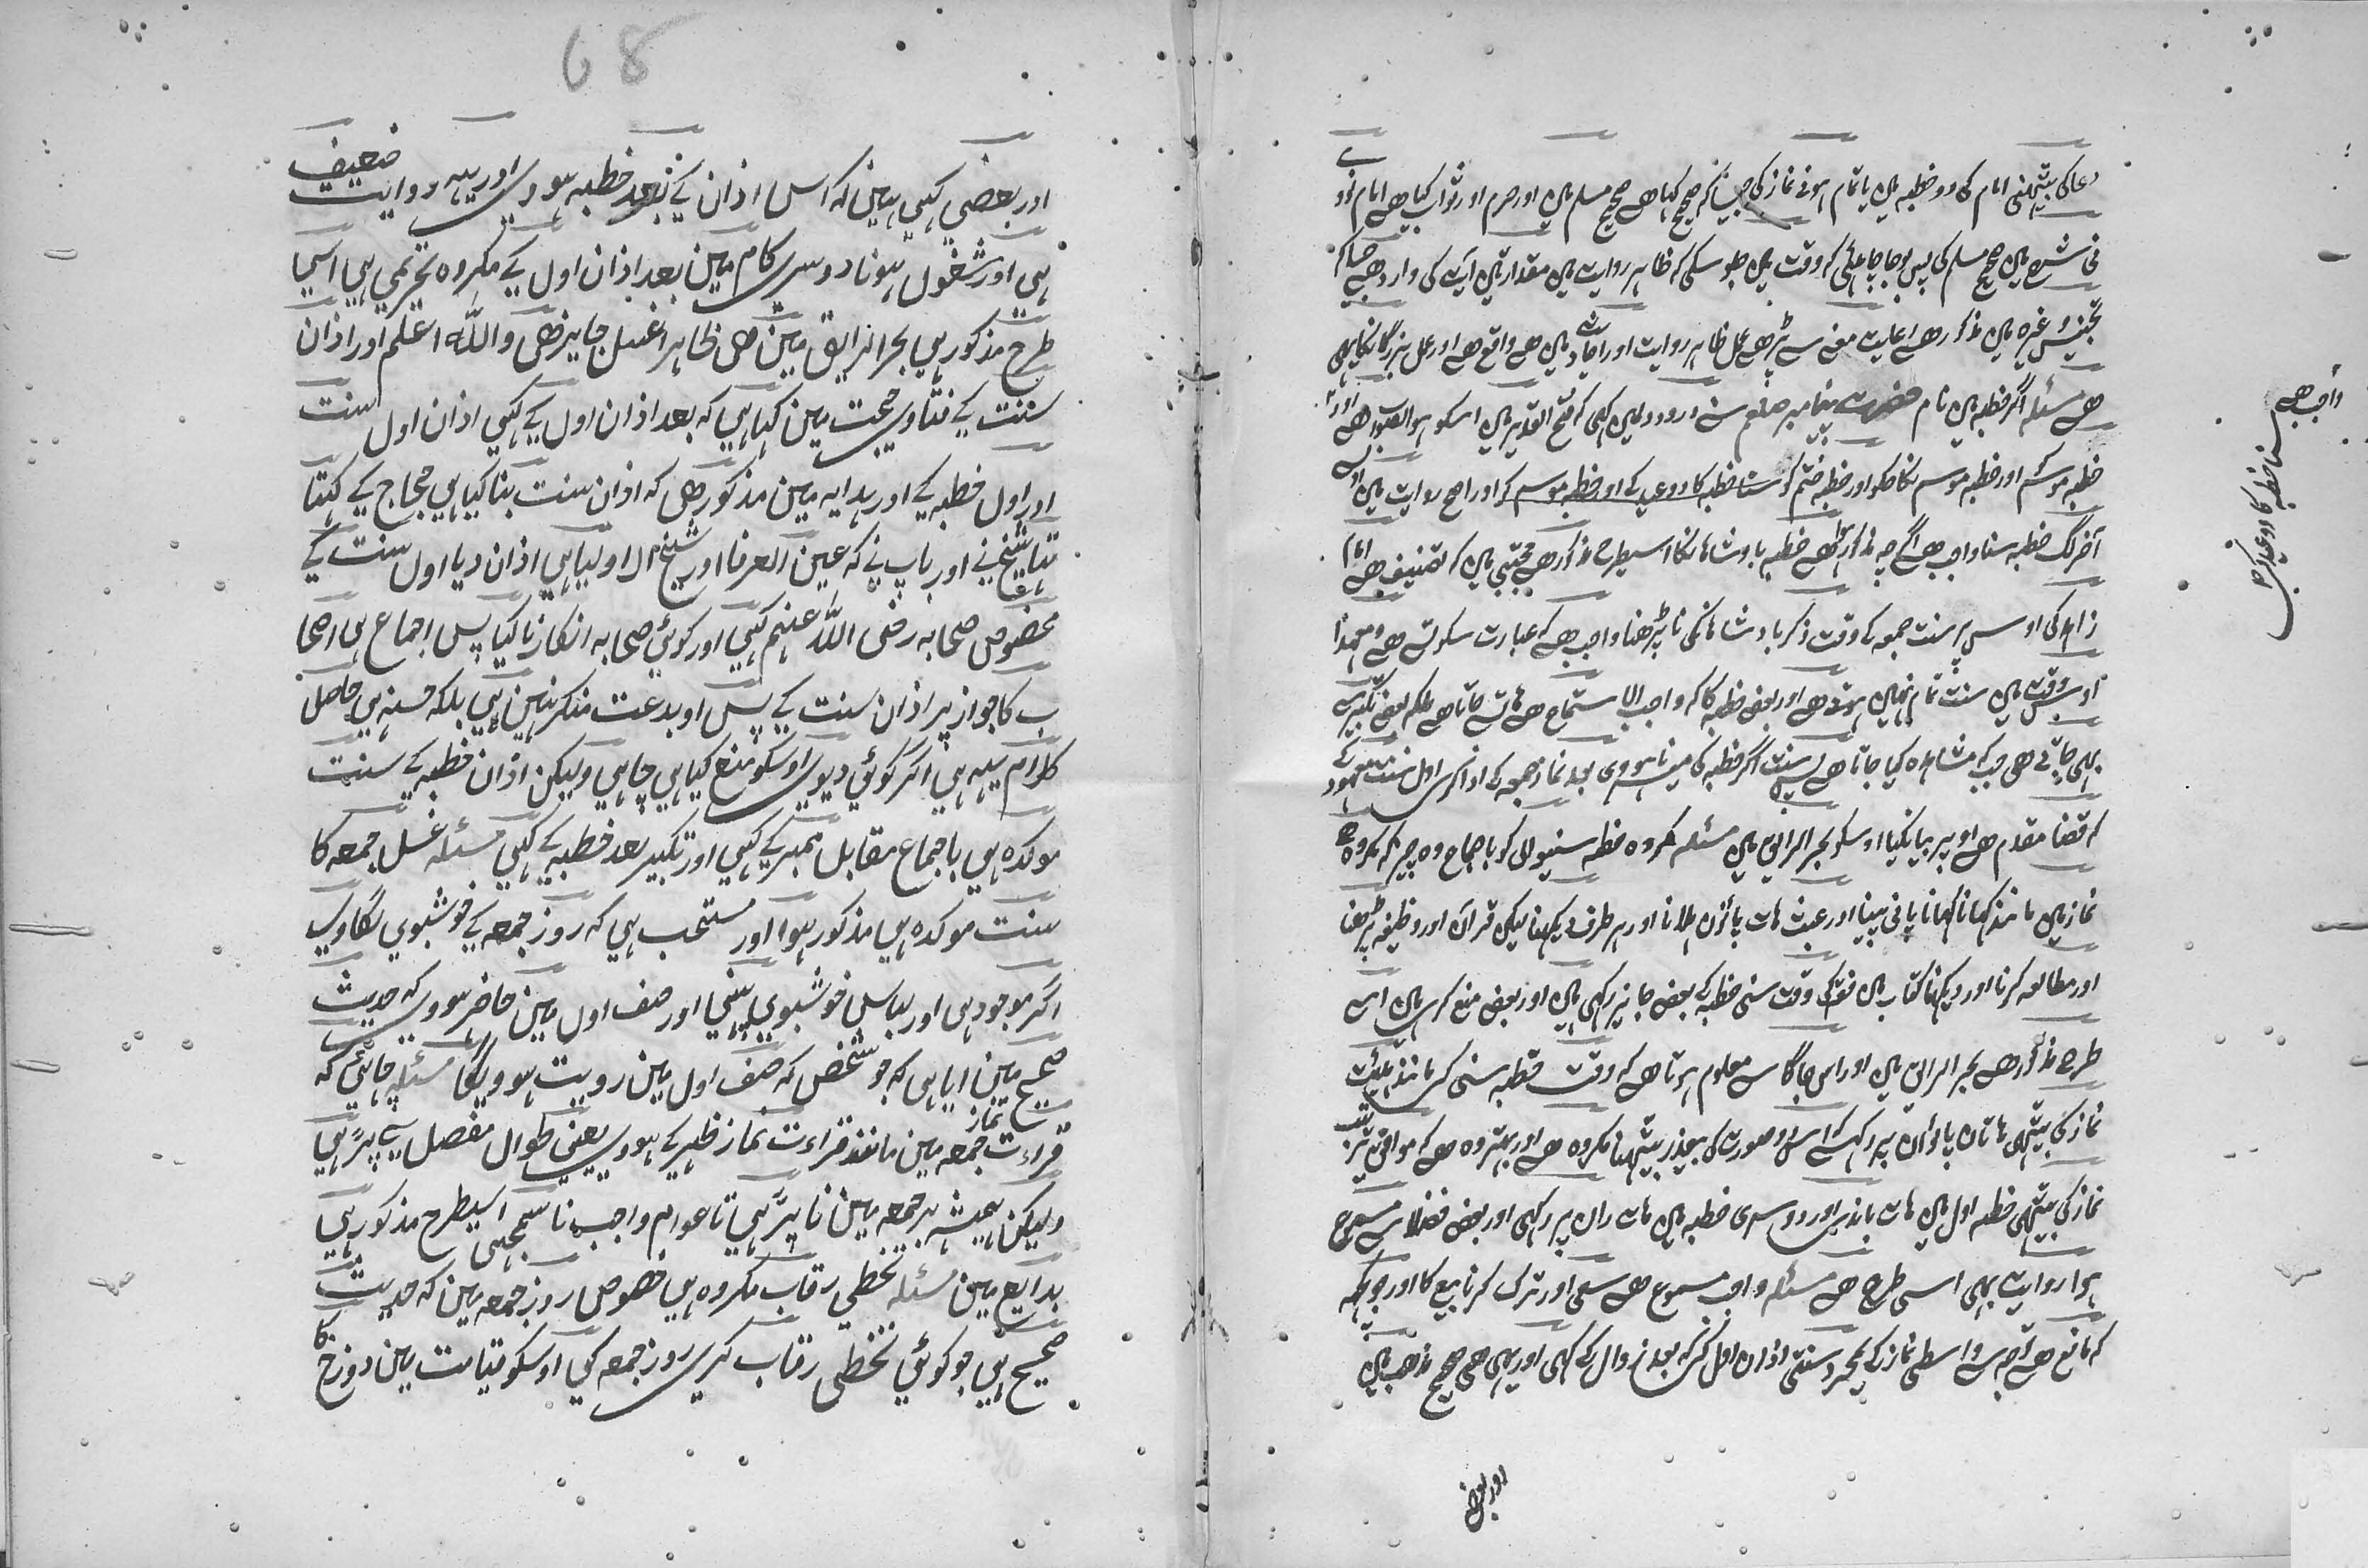 دعا کی بیٹہنی امام کی دو خطبہ میں یا تمام ہونے نماز کی جیسا کہ صحیح کہا هے صحیح مسلم میں اور حرم اور ثواب کیا هے امام نوو
فی شرح میں صحیح مسلم کی پس بوجا چاہئی که وقت میں جلوسکی که ظاہر روایت میں مقدار تین آیت کی وارد هے جیسا که
تجنیس وغیرہ میں مذکور هے رعایت معنی سے پڑھے عمل ظاہر روایت اور احادیث میں هے واقع هے اور عمل بزرگانکا یہی
هے مسئلہ اگر خطبہ میں نام حضرت پیغامبر صلعم سنے درود دلمیں کہی که فتح القدیر میں اسکو ہو الصواب هے اور
خطبہ موسم اور خطبہ موسم نکاحکو اور خطبہ ختم کو سنا خطبہ کا دو عید کے اور خطبہ موسم کو اور اصح روایت میں اول سے
آخر لگ خطبہ سنا واجب هے اگرچہ مذکور هے خطبہ بادشاہانکا اسیطرح مذکور هے مجتبی میں که تصنیف هے امام
زاہد کی اوس پر سنت جمعہ کے وقت ذکر بادشاہانکی نا پڑھنا واجب هے که عبارت سکوت هے ومعہذا
اوس وقت میں سنت تمام نہیں ہوتے هے اور بعض خطبہ کا که واجب الاستماع هے ہات جاتا هے بلکہ بعض تکبیر سے
بہی جاتے هے جب که مشاہدہ کیا جاتا هے پس سنت اگر خطبہ کی میسر نا ہووی بعد نماز جمعہ کے ادا کری اول سنت معہود کے
که قضا مقدم هے اوپر بیا نکیا اوسکو بحر الرایق میں مسئلہ مکروہ خطبہ سنیوالی کو باجماع وہ چیز که مکروہ هے
نماز میں مانند کہانا کہانا پانی پینا اور عبث ہات پاؤں ہلانا اور ہر طرف دیکہنا لیکن قرآن اور وظیفہ پڑھنا
اور مطالعہ کرنا اور دیکہنا کتاب میں فقہ کی وقت سنی خطبہ کے بعض جایز رکہی ہیں اور بعض منع کری ہیں اسی
طرح مذکور هے بحر الرایق میں اور اس جاگا سے معلوم ہوتا هے که وقت خطبہ سنی کی مانند ہیئت
نماز کی بیٹہی ہاتاں پاؤں پر رکہکے اس صورت کی بیعذر بیٹہنا مکروہ هے اور بہتر وہ هے که موافق ترتیب
نماز کی بیٹہی خطبہ اول میں ہات باندی اور دوسری خطبہ میں ہات ران پر رکہی اور بعض فضلا سے مسموع
ہوا روایت بہی اسی طرح هے مسئلہ واجب مسموع هے سعی اور ترک کرنا بیع کا اور جو کچہ
که مانع هے توجہ سے واسطی نماز کے بمجرد سنتی اذان اول کی که بعد زوال کے کہی اور یہی هے صحیح مذہب میں
اور بعض
واجب هے
سنا خطبہ کا دو عید کی
68
اور بعضی کہی ہین که اس اذان کی بعد خطبہ ہووی اور یہہ روایت ضعیف
ہی اور شغول ہونا دوسری کام مین بعد اذان اول کے مکروہ تحریمی ہی اسی
طرح مذکور ہی بحر الرایق مین هی ظاہرا غسل جایز هی واللّٰه اعلم اور اذان
سنت کے فتاوی حجت مین کہا ہی که بعد اذان اول کے کہی اذان اول سنت
اور اول خطبہ کے اور ہدایہ مین مذکور هی که اذان سنت بنا کیا ہی حجاج کے کہتا
تہا شیخنی اور باپ نے که عین العرفا اور شیخ ال اولیا ہی اذان دیا اول سنت کے
مخصوص صحابہ رضی اللّٰه عنہم کہی اور کوئی صحابہ انکار نا کیا پس اجماع ہی اصحا
ب کا جواز پر اذان سنت کے پس او بدعت منکر نہین ہی بلکہ حسنہ ہی حاصل
کلام یہہ ہی اگر کوئی دیوی اوسکو منع کیا ہی چاہی ولیکن اذان خطبہ کے سنت
موکدہ ہی باجماع مقابل ممبر کے کہی اور تکبیر بعد خطبہ کے کہی مسئلہ غسل جمعہ کا
سنت موکدہ ہی مذکور ہوا اور مستحب ہی که روز جمعہ کے خوشبوی لگاوی
اگر موجود ہی اور لباس خوشبوی پہنی اور صف اول مین حاضر ہووی که حدیث
صحیح مین ایا ہی که جو شخص که صف اول مین رویت ہوویگا مسئلہ چاہئی که
قراءت نماز جمعہ مین مانند قراءت نماز ظہر کے ہووی یعنی طوال مفصل سے پڑہی
ولیکن ہمیشہ ہر جمعہ مین نا پڑہی تا عوام واجب نا سمجہی اسیطرح مذکور ہی
بدایع مین مسئلہ تخطی رقاب مکروہ ہی خصوص روز جمعہ مین که حدیث
صحیح ہی جو کوئی تخطی رقاب کری روز جمعہ کی اوسکو قیامت مین دوزخ کا